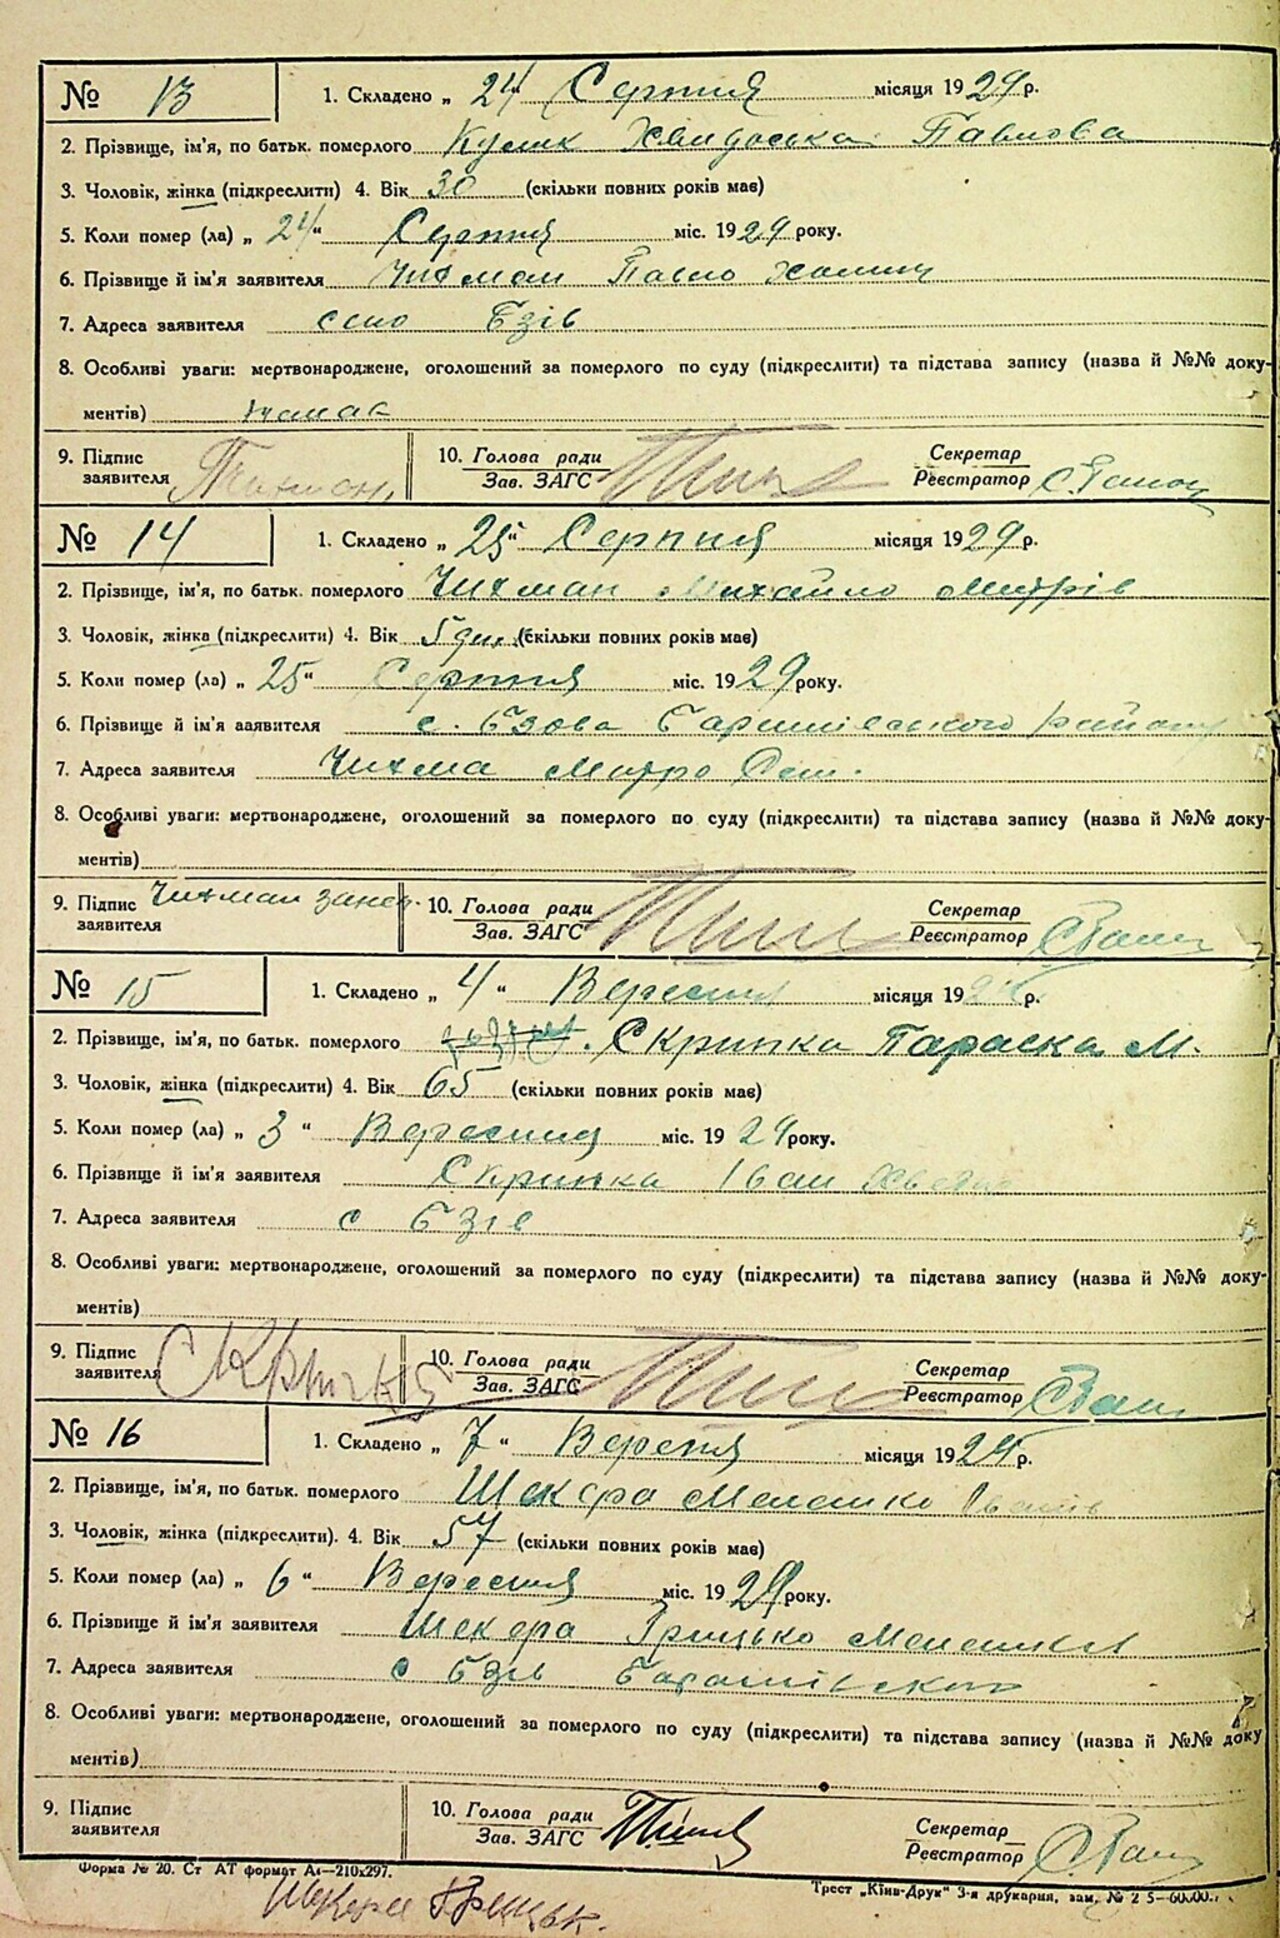 № 13 1. Складено „ 24 " Серпня місяця 1929 р.
2. Прізвище, ім'я, по батьк. померлого Кулик Хвидоська Павлова
3. Чоловік, жінка (підкреслити) 4. Вік 30 (скільки повних років має)
5. Коли помер (ла) „ 24 " Серпня міс. 1929 року.
6. Прізвище й ім'я заявителя Чихман Павло
7. Адреса заявителя село Бзів
8. Особливі уваги: мертвонароджене, оголошений за померлого по суду (підкреслити) та підстава запису (назва й №№ доку-
ментів)
9. Підпис заявителя 10. Голова ради Зав. ЗАГС Секретар Реєстратор
№ 14 1. Складено „ 25 " Серпня місяця 1929 р.
2. Прізвище, ім'я, по батьк. померлого Чихман Михайло Митрів
3. Чоловік, жінка (підкреслити) 4. Вік 5 дн. (скільки повних років має)
5. Коли помер (ла) „ 25 " Серпня міс. 1929 року.
6. Прізвище й ім'я заявителя с. Бзова Баришівського району
7. Адреса заявителя Чихма Митро
8. Особливі уваги: мертвонароджене, оголошений за померлого по суду (підкреслити) та підстава запису (назва й №№ доку-
ментів)
9. Підпис заявителя Чихман 10. Голова ради Зав. ЗАГС Секретар Реєстратор
№ 15 1. Складено „ 4 " Вересня місяця 19 р.
2. Прізвище, ім'я, по батьк. померлого Скрипка Параска М.
3. Чоловік, жінка (підкреслити) 4. Вік 65 (скільки повних років має)
5. Коли помер (ла) „ 3 " Вересня міс. 1929 року.
6. Прізвище й ім'я заявителя Скрипка Іван
7. Адреса заявителя с Бзів
8. Особливі уваги: мертвонароджене, оголошений за померлого по суду (підкреслити) та підстава запису (назва й №№ доку-
ментів)
9. Підпис заявителя Скрипка 10. Голова ради Зав. ЗАГС Секретар Реєстратор
№ 16 1. Складено „ 7 " Вересня місяця 1929 р.
2. Прізвище, ім'я, по батьк. померлого Шекера Мелешко Іванів
3. Чоловік, жінка (підкреслити). 4. Вік 57 (скільки повних років має)
5. Коли помер (ла) „ 6 " Вересня міс. 1929 року.
6. Прізвище й ім'я заявителя Шекера Грицько
7. Адреса заявителя с Бзів
8. Особливі уваги: мертвонароджене, оголошений за померлого по суду (підкреслити) та підстава запису (назва й №№ доку
ментів)
9. Підпис заявителя 10. Голова ради Зав. ЗАГС Секретар Реєстратор
Форма № 20. Ст АТ формат А4—210x297. Трест „Київ-Друк" 3-я друкарня, зам. №
Шекера Грицьк.